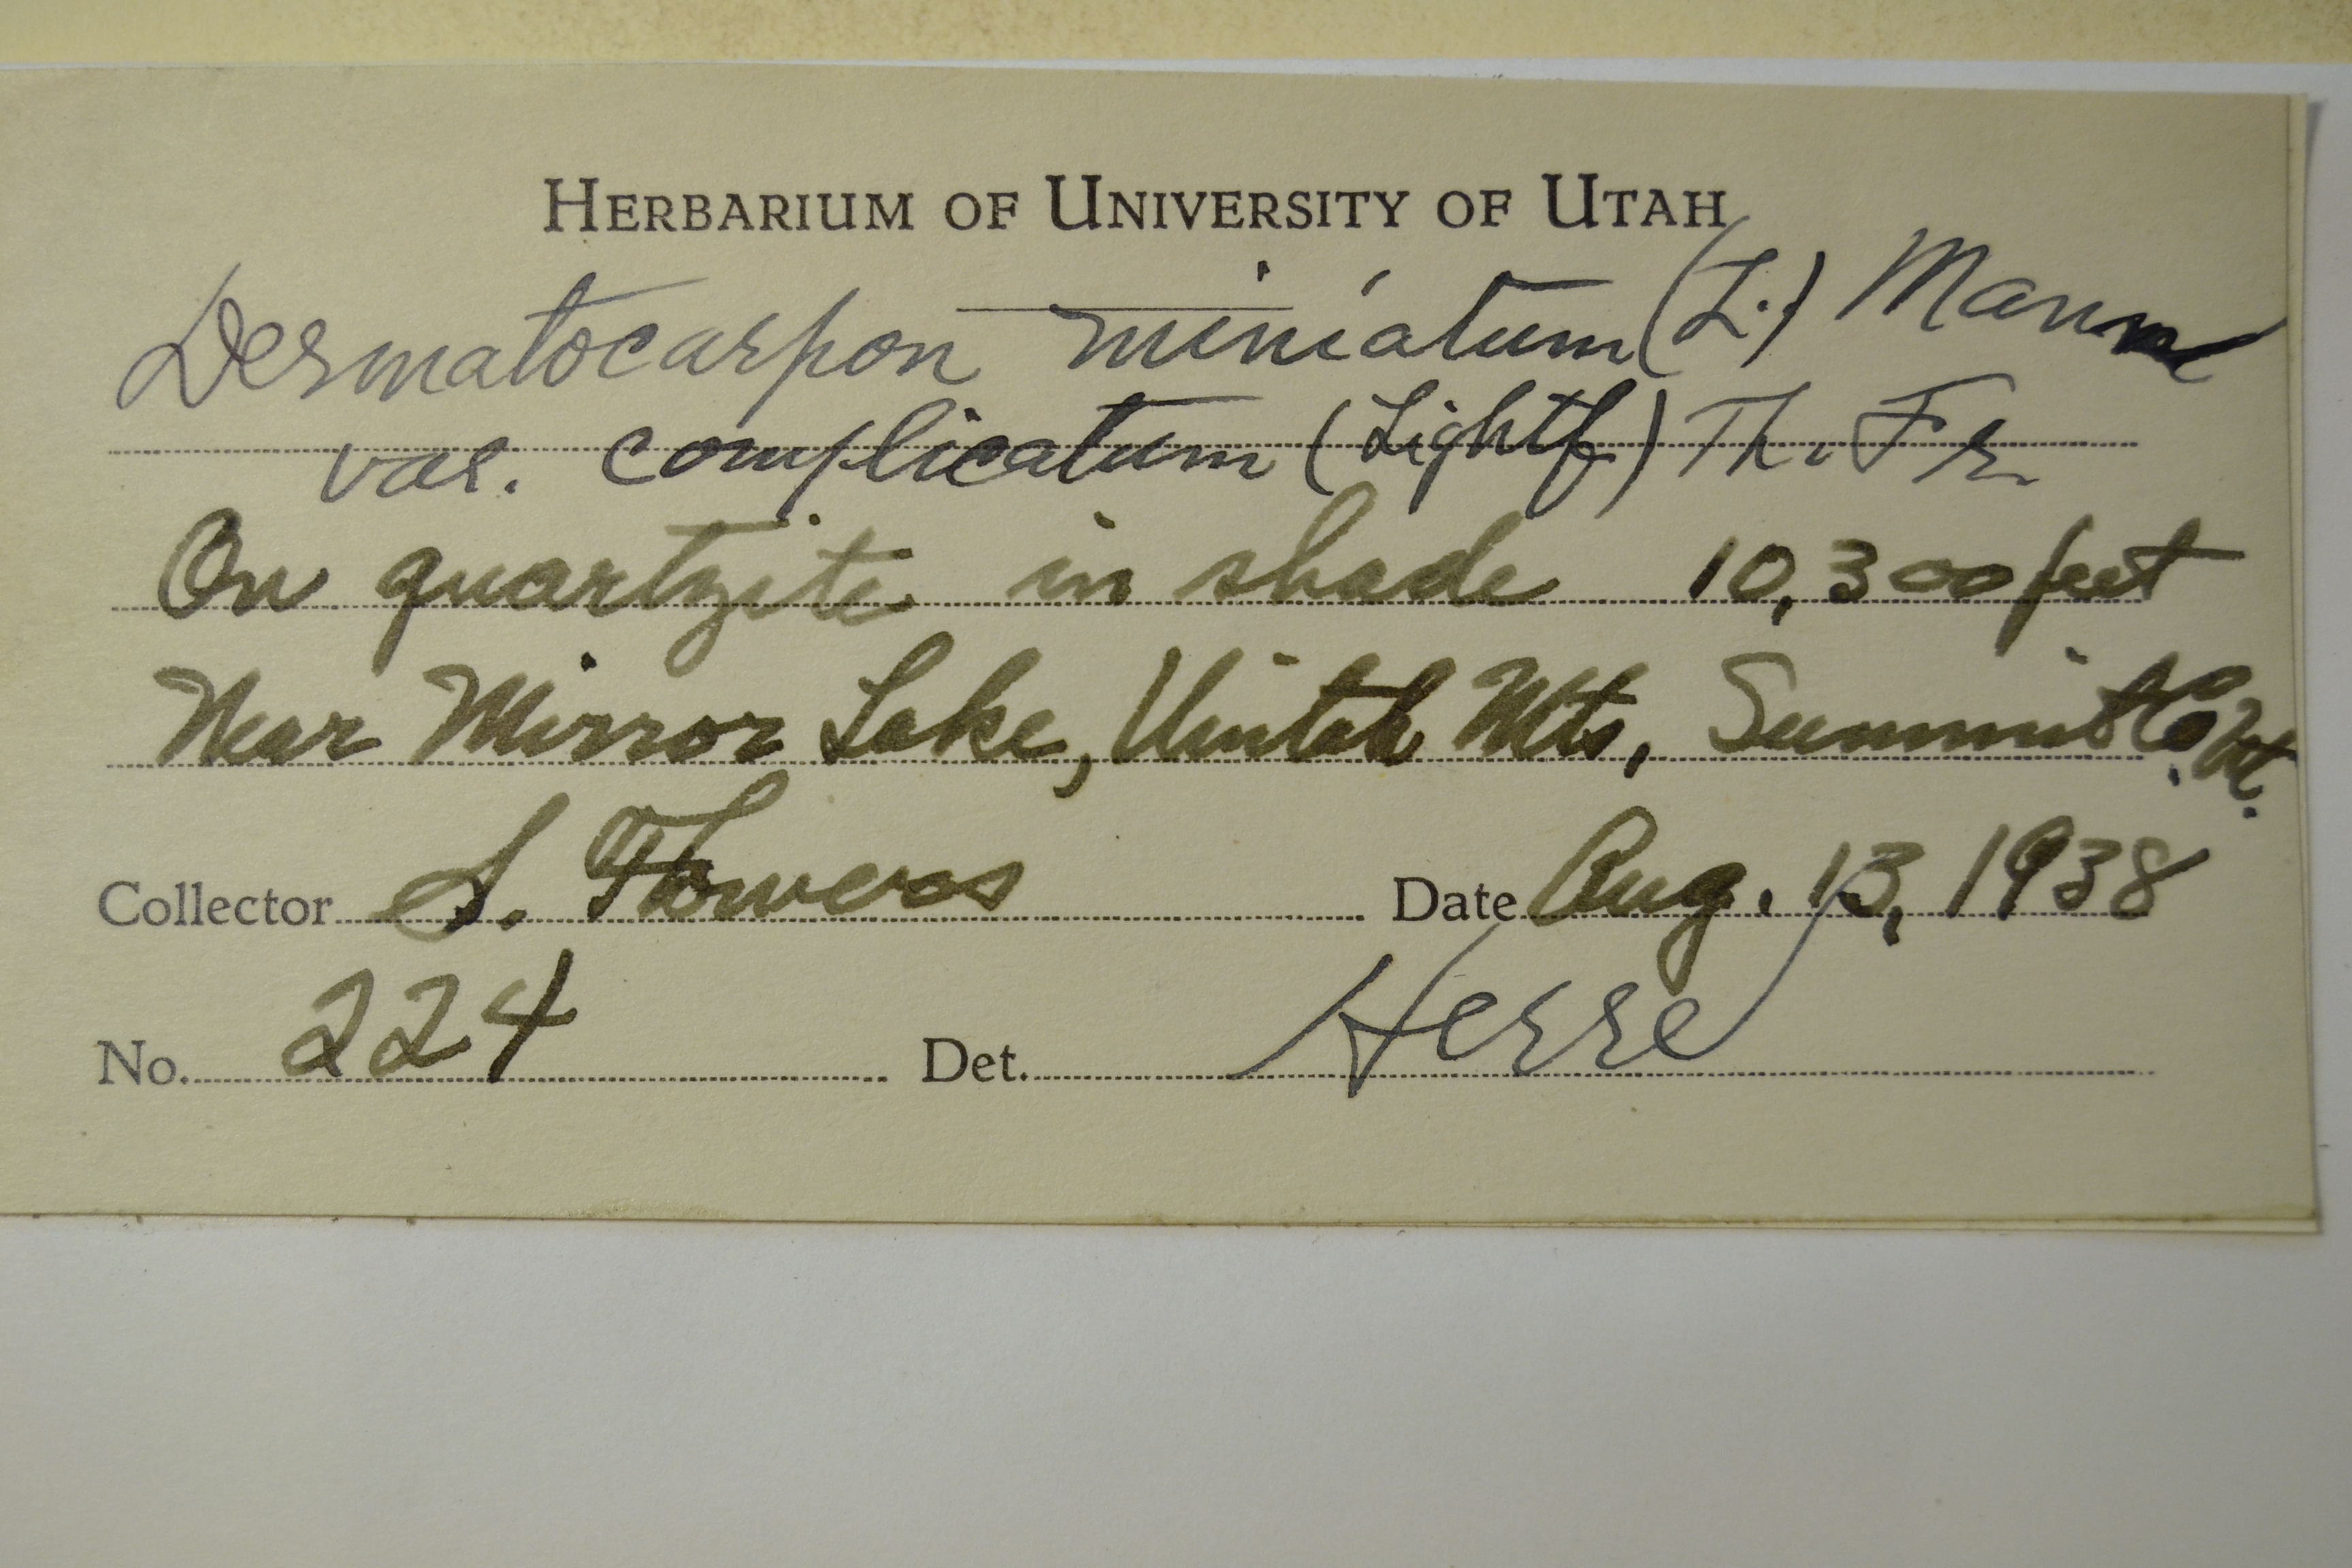 HERBARIUM OF UNIVERSITY OF UTAH
Dermatocarpon miniatum (L.) Mann
var. complicatum (Lightf) Th. Fr.
On quartzite in shade 10,300 feet
Near Mirror Lake, Uintah Mts, Summit Co. Ut.
Collector S. Flowers Date Aug. 13, 1938
No. 224 Det. Herre